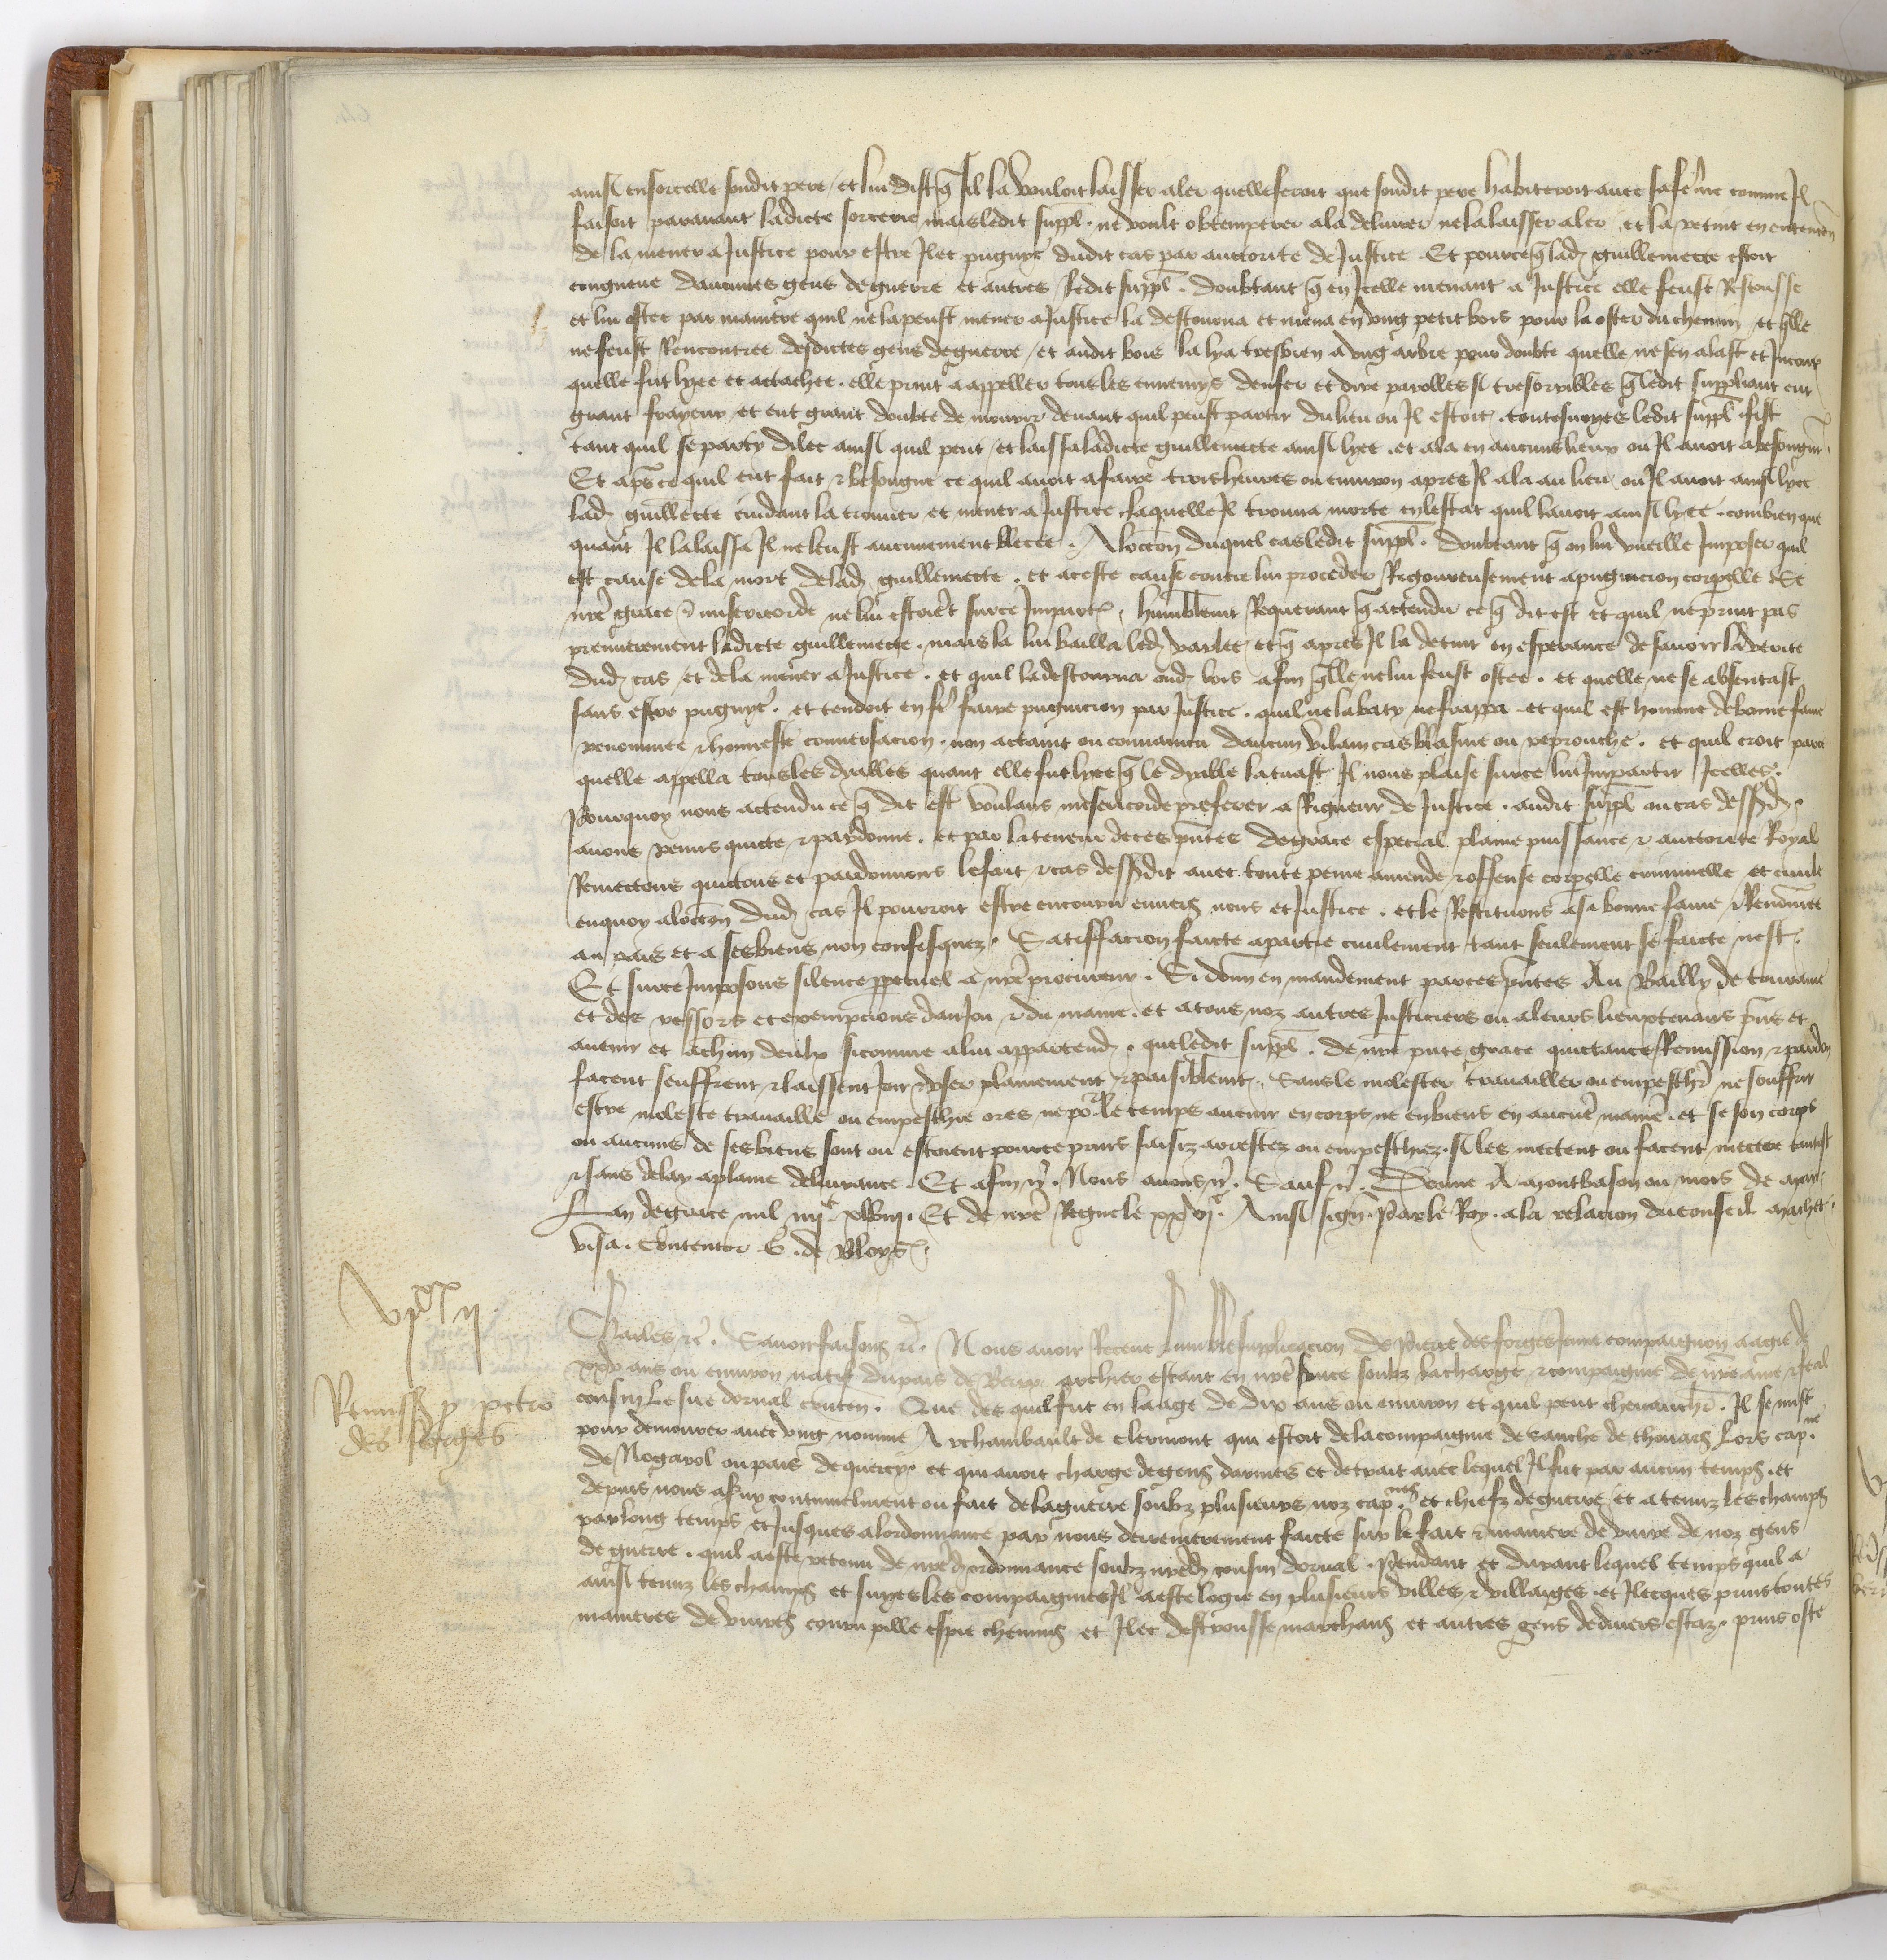 ainsi ensorcelle sondit pere / et lui dist q̃ sil la vouloit laisser aler quelle feroit que sondit pere habiteroit auec sa fem̃e comme Il
faisoit parauant ladicte sorcerie mais ledit suppl̃. ne voult obtemperer a la deliurer ne la laisser aler / et la retint en entencõn
de la mener a Justice pour estre Ilec pugnye dudit cas par auctorite de Justice. Et pource q̃ lad̃ guillemecte estoit
congneue daucunes gens de guerre et autres / ledit suppl̃. doubtant q̃ en Icelle menant a Justice elle feust Rescousse
et lui ostee par maniere quil ne la peust mener a Justice la destourna et mena en vng petit bois pour la oster du chemin / et q̃lle
ne feust Rencontree desdictes gens de guerre / et audit bois la lya tresbien a vng arbre pour doubte quelle ne sen alast et Incontñ
quelle fut lyee et actachee. elle print a appeller tous les ennemys denfer et dire parolles si tresorribles q̃ ledit suppliant eut
grant frayeur / et eut grant doubte de mourir deuant quil peust partir du lieu ou Il estoit. toutesuoyes ledit suppl̃. fist
tant quil se party dilec ainsi quil peut / et laissa ladicte guillemecte ainsi lyee. et ala en aucuns lieux ou Il auoit a besongner.
Et apr̃s ce quil eut fait & besongne ce quil auoit a faire trois heures ou enuiron apres Il ala au lieu ou Il auoit ainsi lyee
lad̃ guill̃ecte cuidant la trouuer et mener a Justice / laquelle Il trouua morte en lestat quil lauoit ainsi lyee. combien que
quant Il la laissa Il ne leust aucunement blecee. A loccõn duquel cas ledit suppl̃. doubtant q̃ on lui vueille Imposer quil
est cause de la mort de lad̃ guillemecte. et a ceste cause contre lui proceder Rigoureusement a pugnicion corporelle se
nr̃e grace & misericorde ne lui estoit sur ce Impartie. humblemt̃ Requerant q̃ actendu ce q̃ dit est et quil ne print pas
premierement ladicte guillemecte. mais la lui bailla led̃ varlet / et q̃ apres Il la detint en esperance de sauoir la verite
dud̃ cas / et de la mener a Justice. et quil la destourna oud̃ bois afin q̃lle ne lui feust ostee. et quelle ne se absentast
sans estre pugnye. et tendoit en fẽ faire pugnicion par Justice. quil ne la baty ne frappa. et quil est homme de bonne fame
renommee & honneste conuersacion. non actaint ou conuaincu daucun vilain cas blasme ou reprouche. et quil croit parce
quelle appella tous les dyables quant elle fut lyee q̃ le dyable la tuast Il nous plaise sur ce lui Impartir Icelles.
Pourquoy nous actendu ce q̃ dit est voulans misericorde preferer a Rigueur de Justice. audit suppl̃ ou cas dessusd̃.
auons remis quicte & pardonne. et par la teneur de ces pñtes de grace especial plaine puissance & auctorite Royal
Remectons quictons et pardonnons le fait & cas dessusdit auec toute peine amende & offense corporelle criminelle et ciuile
en quoy a loccõn dud̃ cas Il pourroit estre encouru enuers nous et Justice. et le Restituons a sa bonne fame & Renõmee
au pais et a ses biens non confisquez. Satisfacion faicte a partie ciuilement tant seulement se faicte nest.
Et sur ce Imposons silence perpetuel a nr̃e procureur. Si donñ en mandement par ces pñtes Au Bailly de touraine
et des ressors et exempcions daniou & du maine. et a tous noz autres Justiciers ou a leurs lieuxtenans pñs et
auenir et a chun̄ deulx sicomme a lui appartend̃. que ledit suppl̃. de nr̃e pñte grace quictance Remission & pardon
facent seuffrent & laissent Joir & vser plainement & paisiblemt̃. Sans le molester trauailler ou empescher ne souffrir
estre moleste trauaille ou empeschie ores ne pour le temps auenir en corps ne en biens en aucune maniẽ. et se son corps
ou aucuns de ses biens sont ou estoient pource prins saisiz arrestez ou empeschiez. si les mectent ou facent mectre tantost
& sans delay a plaine deliurance. Et afin &c̃. Nous auons &c̃. Sauf &c̃. Donne A montbason ou mois de mars
Lan de grace mil iiijc xlviij. Et de nr̃e Regne le xxvij.e Ainsi signe. Par le Roy. a la relacion du conseil.
Visa. Contentor. E. de Bloys.
Remiss̃ p̃ petro
des forges
Charles &c̃. Sauoir faisons &c̃. Nous auoir Receue humble supplicacion de Pierre des forges Jeune compaignon aagie de
xxv ans ou enuiron natif du pais de Berry archier estant en nr̃e seruice soubz la charge & compaignie de nr̃e ame & feal
cousin le sire dorual conten̄. Que des quil fut en laage de dix ans ou enuiron et quil peut cheuauchier. Il se mist
pour demourer auec vng nomme Archambault de clermont qui estoit de la compaignie de Sanche de thouars lors cap.ne
de Nogarol ou pais de quercy. et qui auoit charge de gens darmes et de trait auec lequel Il fut par aucun temps. et
depuis nous a seruy continuelment ou fait de la guerre soubz plusieurs noz cap.nes et chiefz de guerre / et a tenuz les champs
par long temps et Jusques a lordonnance par nous derrenierement faicte sur le fait & maniere de viure de noz gens
de guerre. quil a este retenu de nr̃ed̃ ordonnance soubz nr̃ed̃ cousin dorual. Pendant et durant lequel temps quil a
ainsi tenuz les champs et suyes les compaignies Il a este logie en plusieurs villes & villaiges. et Ilecques prins toutes
manieres de viures couru pille espie chemins et Ilec destrousse marchans et autres gens de diuers estaz. prins oste